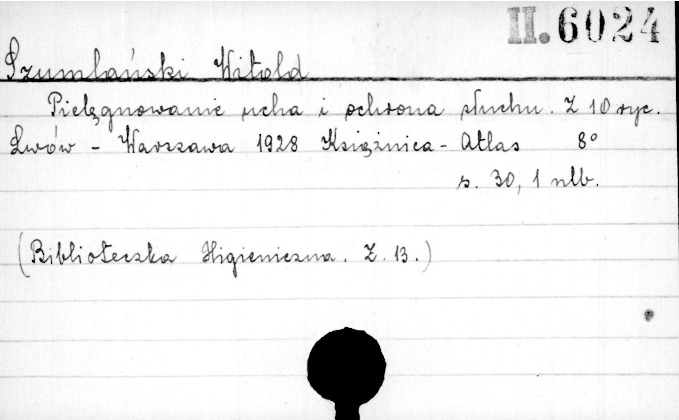 II. 6024
Szumlański Witold
Pielęgnowanie ucha i ochrona słuchu. Z 10 ryc.
Lwów - Warszawa 1928 Książnica - Atlas 8°
s. 30, 1 nlb.
(Biblioteczka Higieniczna. Z. 13.)